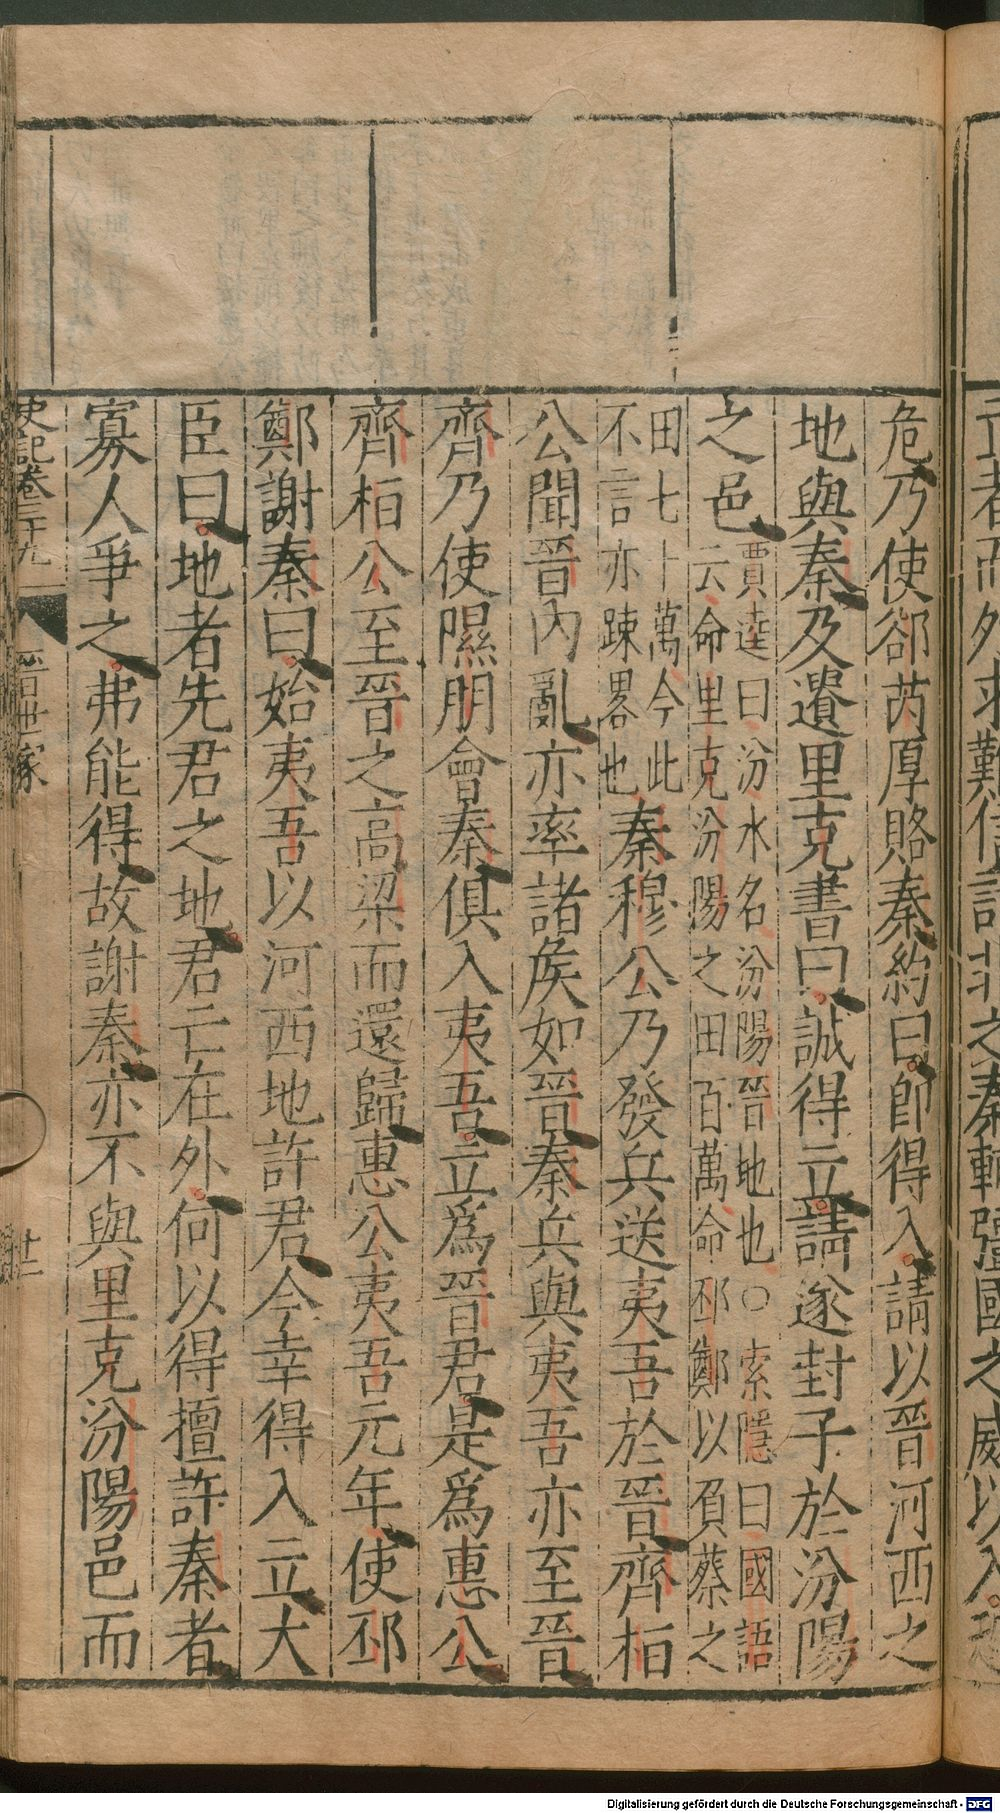 危乃使郤芮厚賂秦約曰卽得入請以晉河西之
地與秦及遺里克書曰誠得立請遂封子於汾陽
之邑賈逵曰汾水名汾陽晉地也○索隱曰國語
云命里克汾陽之田百萬命邳鄭以負蔡之
田七十萬今此
不言亦疎畧也秦穆公乃發兵送夷吾於晉齊桓
公聞晉內亂亦率諸侯如晉秦兵與夷吾亦至晉
齊乃使隰朋會秦俱入夷吾立爲晉君是爲惠公
齊桓公至晉之高梁而還歸惠公夷吾元年使邳
鄭謝秦曰始夷吾以河西地許君今幸得入立大
臣曰地者先君之地君亡在外何以得擅許秦者
寡人爭之弗能得故謝秦亦不與里克汾陽邑而
史記卷三十九 晉世家 廿二
Digitalisierung gefördert durch die Deutsche Forschungsgemeinschaft - DFG